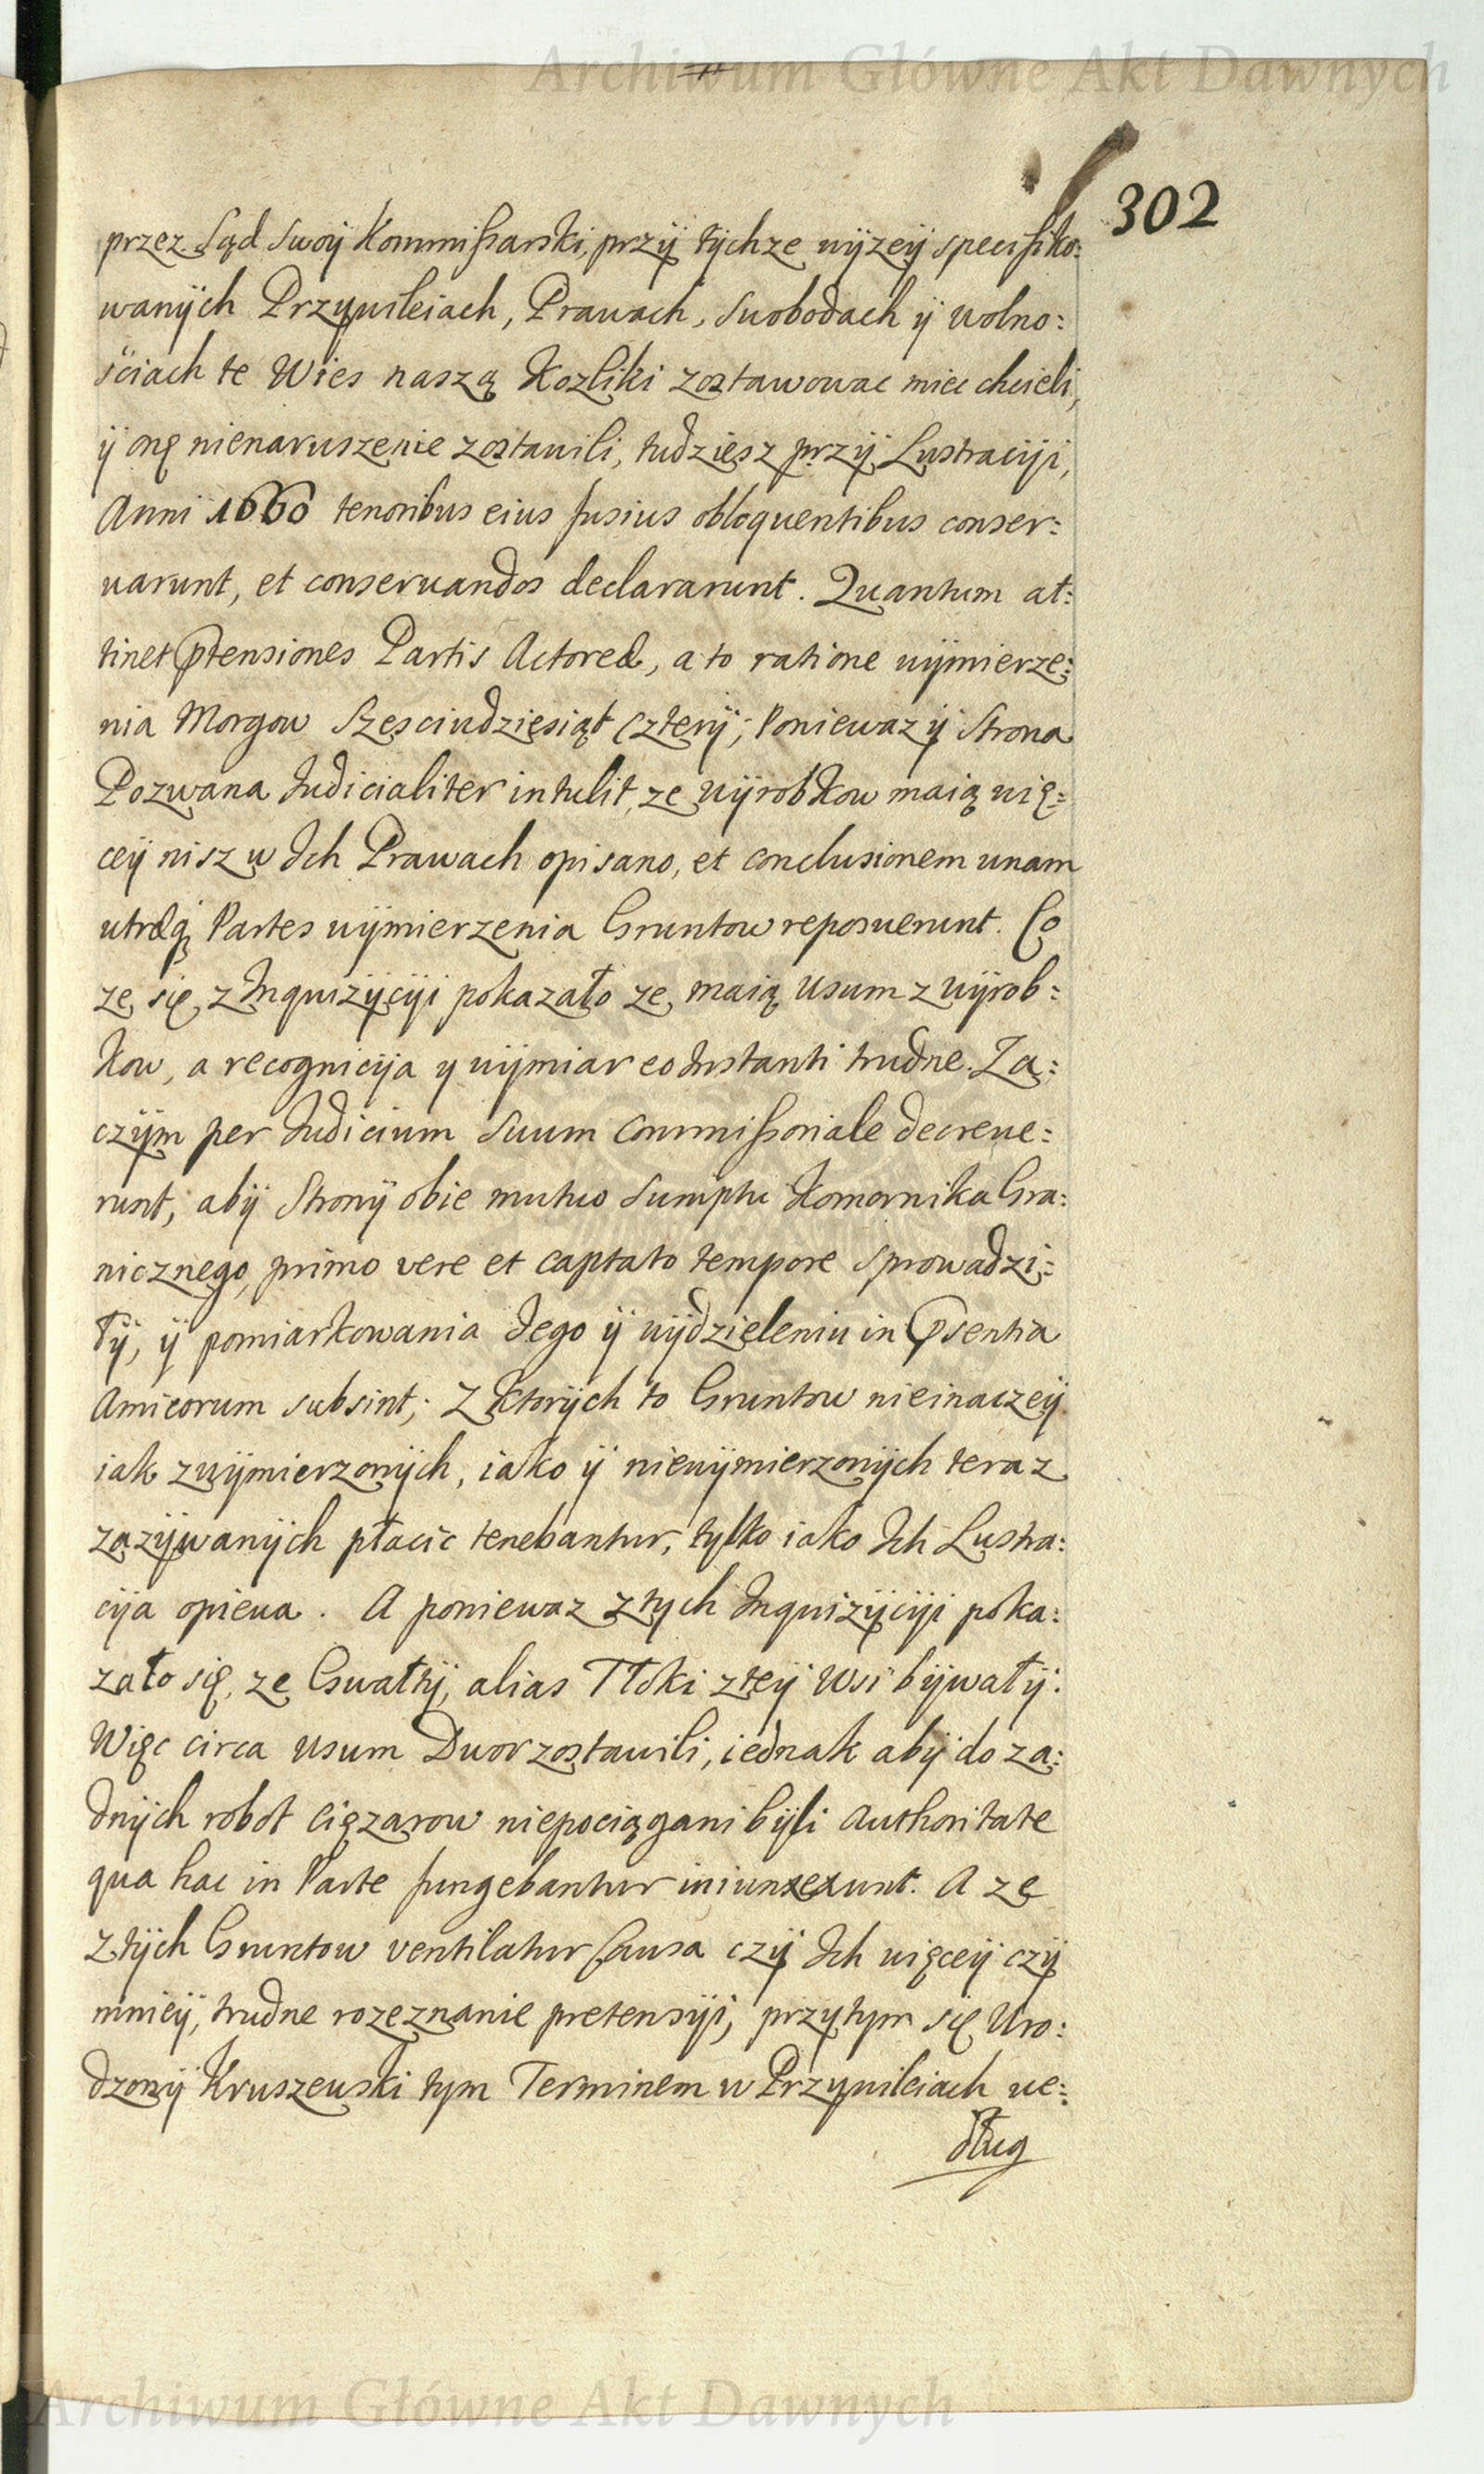 Archiwum Główne Akt Dawnych
302
przez Sąd Swoÿ Kommissarski, przÿ tÿchze wÿzeÿ specifiko:
wanÿch Przywileiach, Prawach, Swobodach ÿ wolno:
sciach te Wies naszą Kozliki zostawowac miec chcieli,
ÿ onę nienaruszenie zostawili, tudziesz przÿ Lustracÿi,
Anni 1660 tenoribus eius fusius obloquentibus conser:
uarunt, et conseruandos declararunt. Quantum at:
tinet ptensiones Partis Actoreæ, a to ratione wÿmierze:
nia Morgow Szesciudziesiąt Czterÿ; Poniewaz ÿ Strona
Pozwana Judicialiter intulit, ze wÿrobkow maią wię:
ceÿ nisz w Ich Prawach opisano, et conclusionem unam
utræq Partes wÿmierzenia Gruntow reposuerunt. Co
ze się z Inquizÿcÿi pokazało ze maią usum z wÿrob:
kow, a recognicÿa y wÿmiar eo Instanti trudne. Za:
czÿm per Judicium Suum Commissoriale decreue:
runt, abÿ Stronÿ obie mutuo Sumptu Komornika Gra:
nicznego, primo vere et captato tempore sprowadzi:
łÿ, ÿ pomiarkowania Jego ÿ wÿdzieleniu in Psentia
Amicorum subsint; Z ktorÿch to Gruntow nieinaczeÿ
iak zwÿmierzonÿch, iako ÿ niewÿmierzonÿch teraz
zazÿwanÿch płacic tenebantur, tylko iako Ich Lustra:
cÿa opiewa. A poniewaz z tych Inquizÿcÿi poka:
zało się, ze Gwałtÿ, alias Tłoki z teÿ Wsi bÿwałÿ:
Więc circa usum Dwor zostawili, iednak abÿ do za:
dnÿch robot cięzarow niepociągani bÿli Authoritate
qua hac in Parte fungebantur iniunxerunt. A ze
z tÿch Gruntow ventilatur Causa czÿ Ich więceÿ czÿ
mnieÿ, trudne rozeznanie pretensÿi, przytym się Uro:
dzonÿ Kruszewski tym Terminem w Przywileiach we:
dług
Archiwum Główne Akt Dawnych